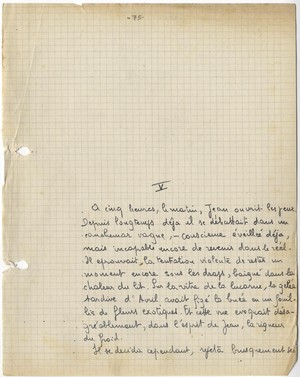 - 75 -
V
A cinq heures, le matin, Jean ouvrit les yeux.
Depuis longtemps déjà il se débattait dans un
cauchemar vague, – conscience éveillée déjà,
mais incapable encore de revenir dans le réel.
Il éprouvait la tentation violente de rester un
moment encore sous les draps, baigné dans la
chaleur du lit. Sur la vitre de la lucarne, la gelée
tardive d'Avril avait figé la buée en un
de fleurs exotiques. Et cette vue évoquait désa-
gréablement, dans l'esprit de Jean, la rigueur
du froid.
Il se décida cependant, rejeta brusquement ses